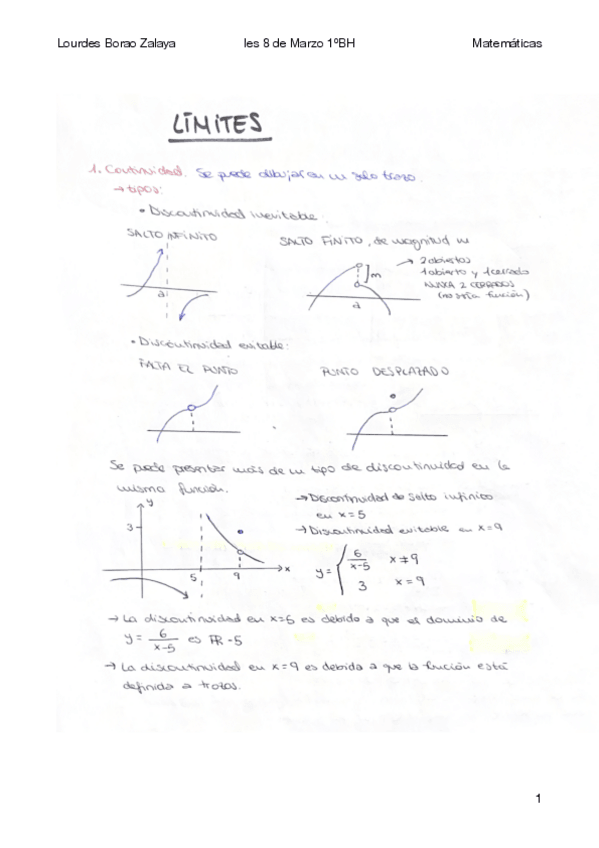 Lourdes Borao Zalaya Ies 8 de Marzo 1ºBH Matemáticas
LÍMITES
1. Continuidad. Se puede dibujar en un solo trazo.
→ tipos:
• Discontinuidad inevitable:
SALTO INFINITO
SALTO FINITO, de magnitud m
→ 2 abiertos
1 abierto y 1 cerrado
NUNCA 2 CERRADOS
(no sería función)
m
a
a
• Discontinuidad evitable:
FALTA EL PUNTO
PUNTO DESPLAZADO
Se puede presentar más de un tipo de discontinuidad en la
misma función.
→ Discontinuidad de salto infinito
en x=5
→ Discontinuidad evitable en x=9
y
3
5
9
x
y = { 6/x-5 x≠9
3 x=9
→ La discontinuidad en x=5 es debida a que el dominio de
y = 6/x-5 es ℝ-5
→ La discontinuidad en x=9 es debida a que la función está
definida a trozos.
1